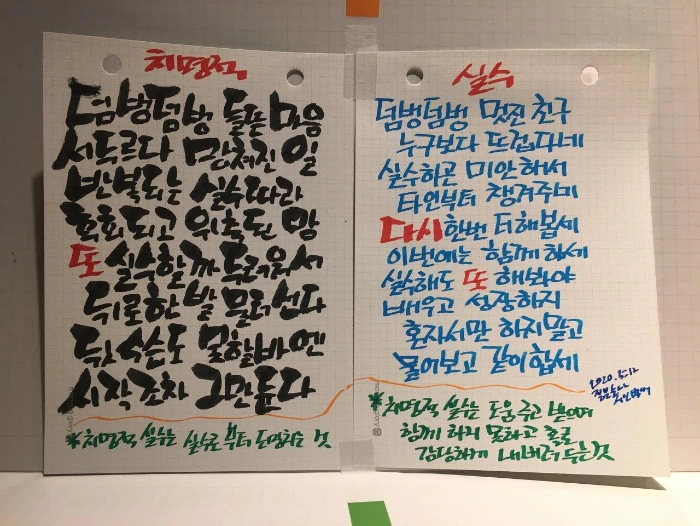 치명적
덤벙덤벙 들뜬 마음
서두르다 망쳐진 일
반복되는 실수따라
후회되고 위축된 맘
또 실수할까 두려워서
뒤로한발 물러선다
뒤치닥은도 못할바엔
시작조차 그만둔다
*치명적 실수는 실수로부터 도망치는 것
실수
덤벙덤벙 멋진 친구
누구보다 뜨겁다네
실수하곤 미안해서
타인부터 챙겨주네
다시한번 더해봅세
이번에는 함께 하세
실수해도 또 해봐야
배우고 성장하지
혼자서만 하지말고
물어보고 같이합세
2020.5.12
*치명적 실수는 도움주고 받으며
함께 하지 못하고 홀로
감당하게 내버려 두는것